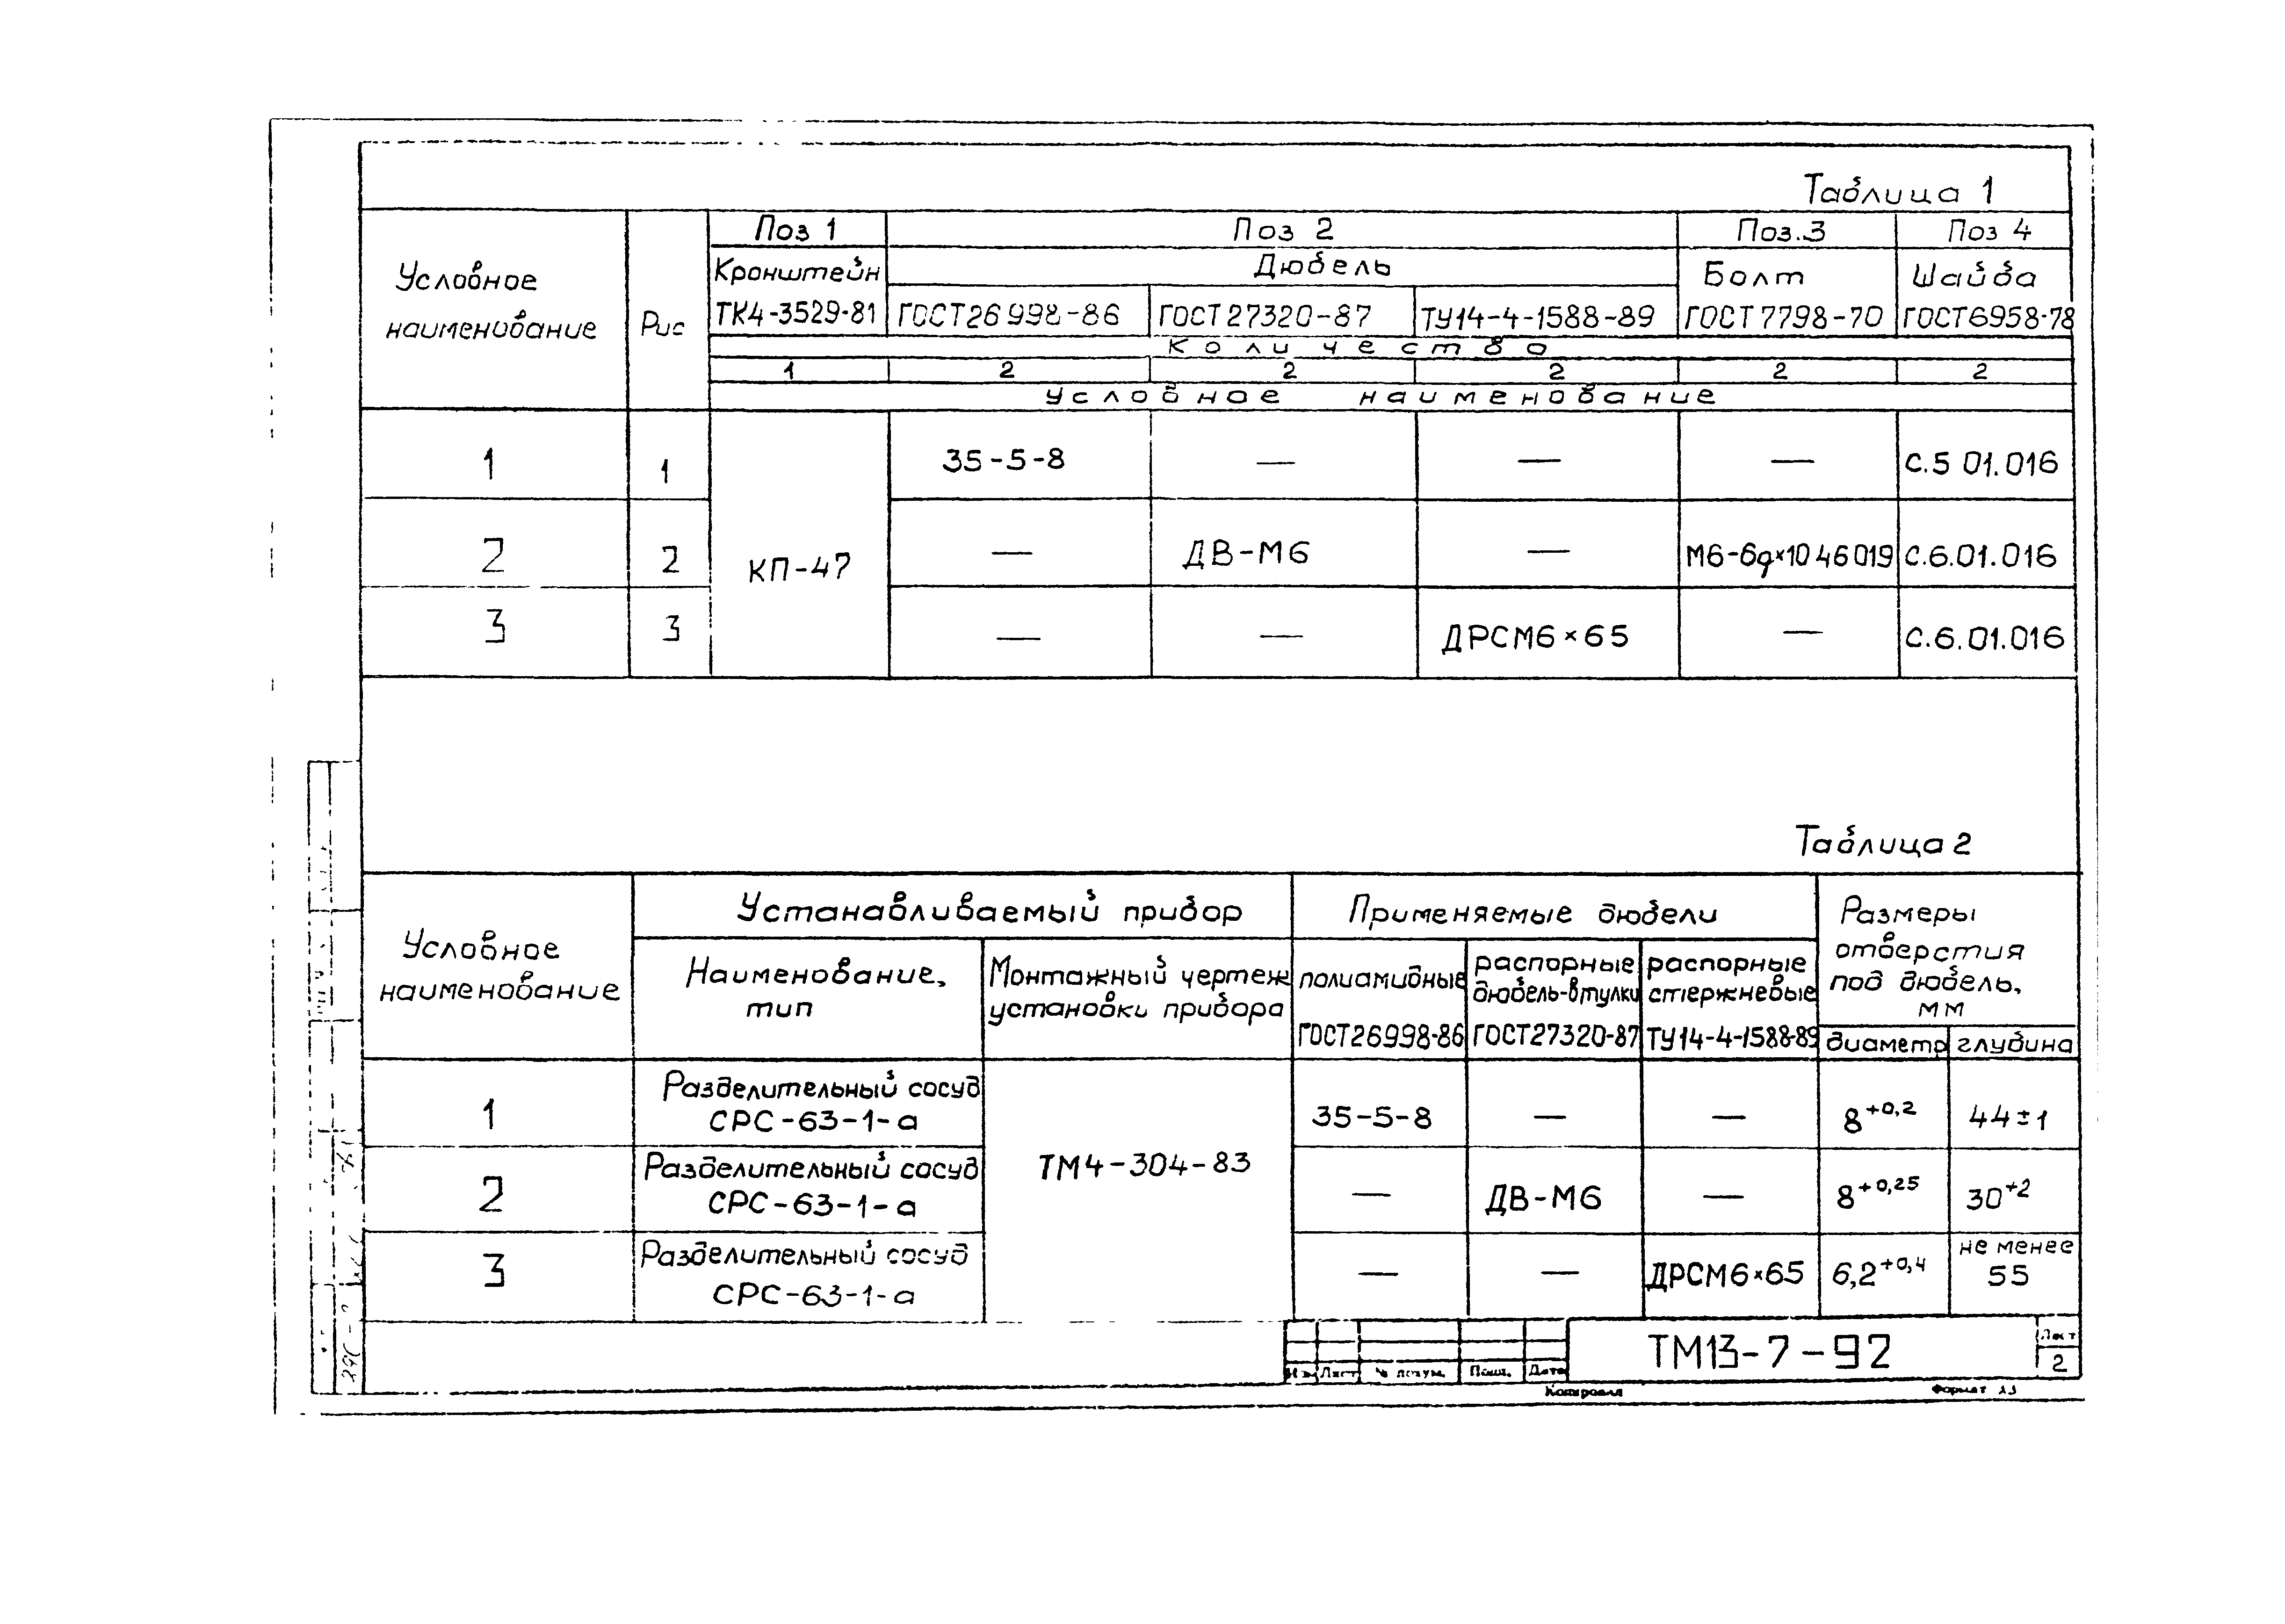 Таблица 1
Условное наименование
Рис
Поз 1
Поз 2
Поз.3
Поз 4
Кронштейн
ТК4-3529-81
Дюбель
ГОСТ26998-86
ГОСТ27320-87
ТУ14-4-1588-89
Болт
ГОСТ7798-70
Шайба
ГОСТ6958-78
Количество
1 2 2 2 2 2
Условное наименование
1 1 35-5-8 — — — С.5 01.016
КП-47
2 2 — ДВ-М6 — М6-6g×10 46 019 С.6.01.016
3 3 — — ДРСМ6×65 — С.6.01.016
Таблица 2
Условное наименование
Устанавливаемый прибор
Применяемые дюбели
Размеры
отверстия
под дюбель,
мм
Наименование,
тип
Монтажный чертеж
установки прибора
полиамидные
ГОСТ26998-86
распорные
дюбель-втулки
ГОСТ27320-87
распорные
стержневые
ТУ14-4-1588-89
диаметр глубина
1 Разделительный сосуд
СРС-63-1-а
35-5-8 — — 8+0,2 44±1
ТМ4-304-83
2 Разделительный сосуд
СРС-63-1-а
— ДВ-М6 — 8+0,25 30+2
3 Разделительный сосуд
СРС-63-1-а
— — ДРСМ6×65 6,2+0,4 не менее
55
ТМ13-7-92
Лист
2
Лист № докум. Подп. Дата
Копировал
Формат А3